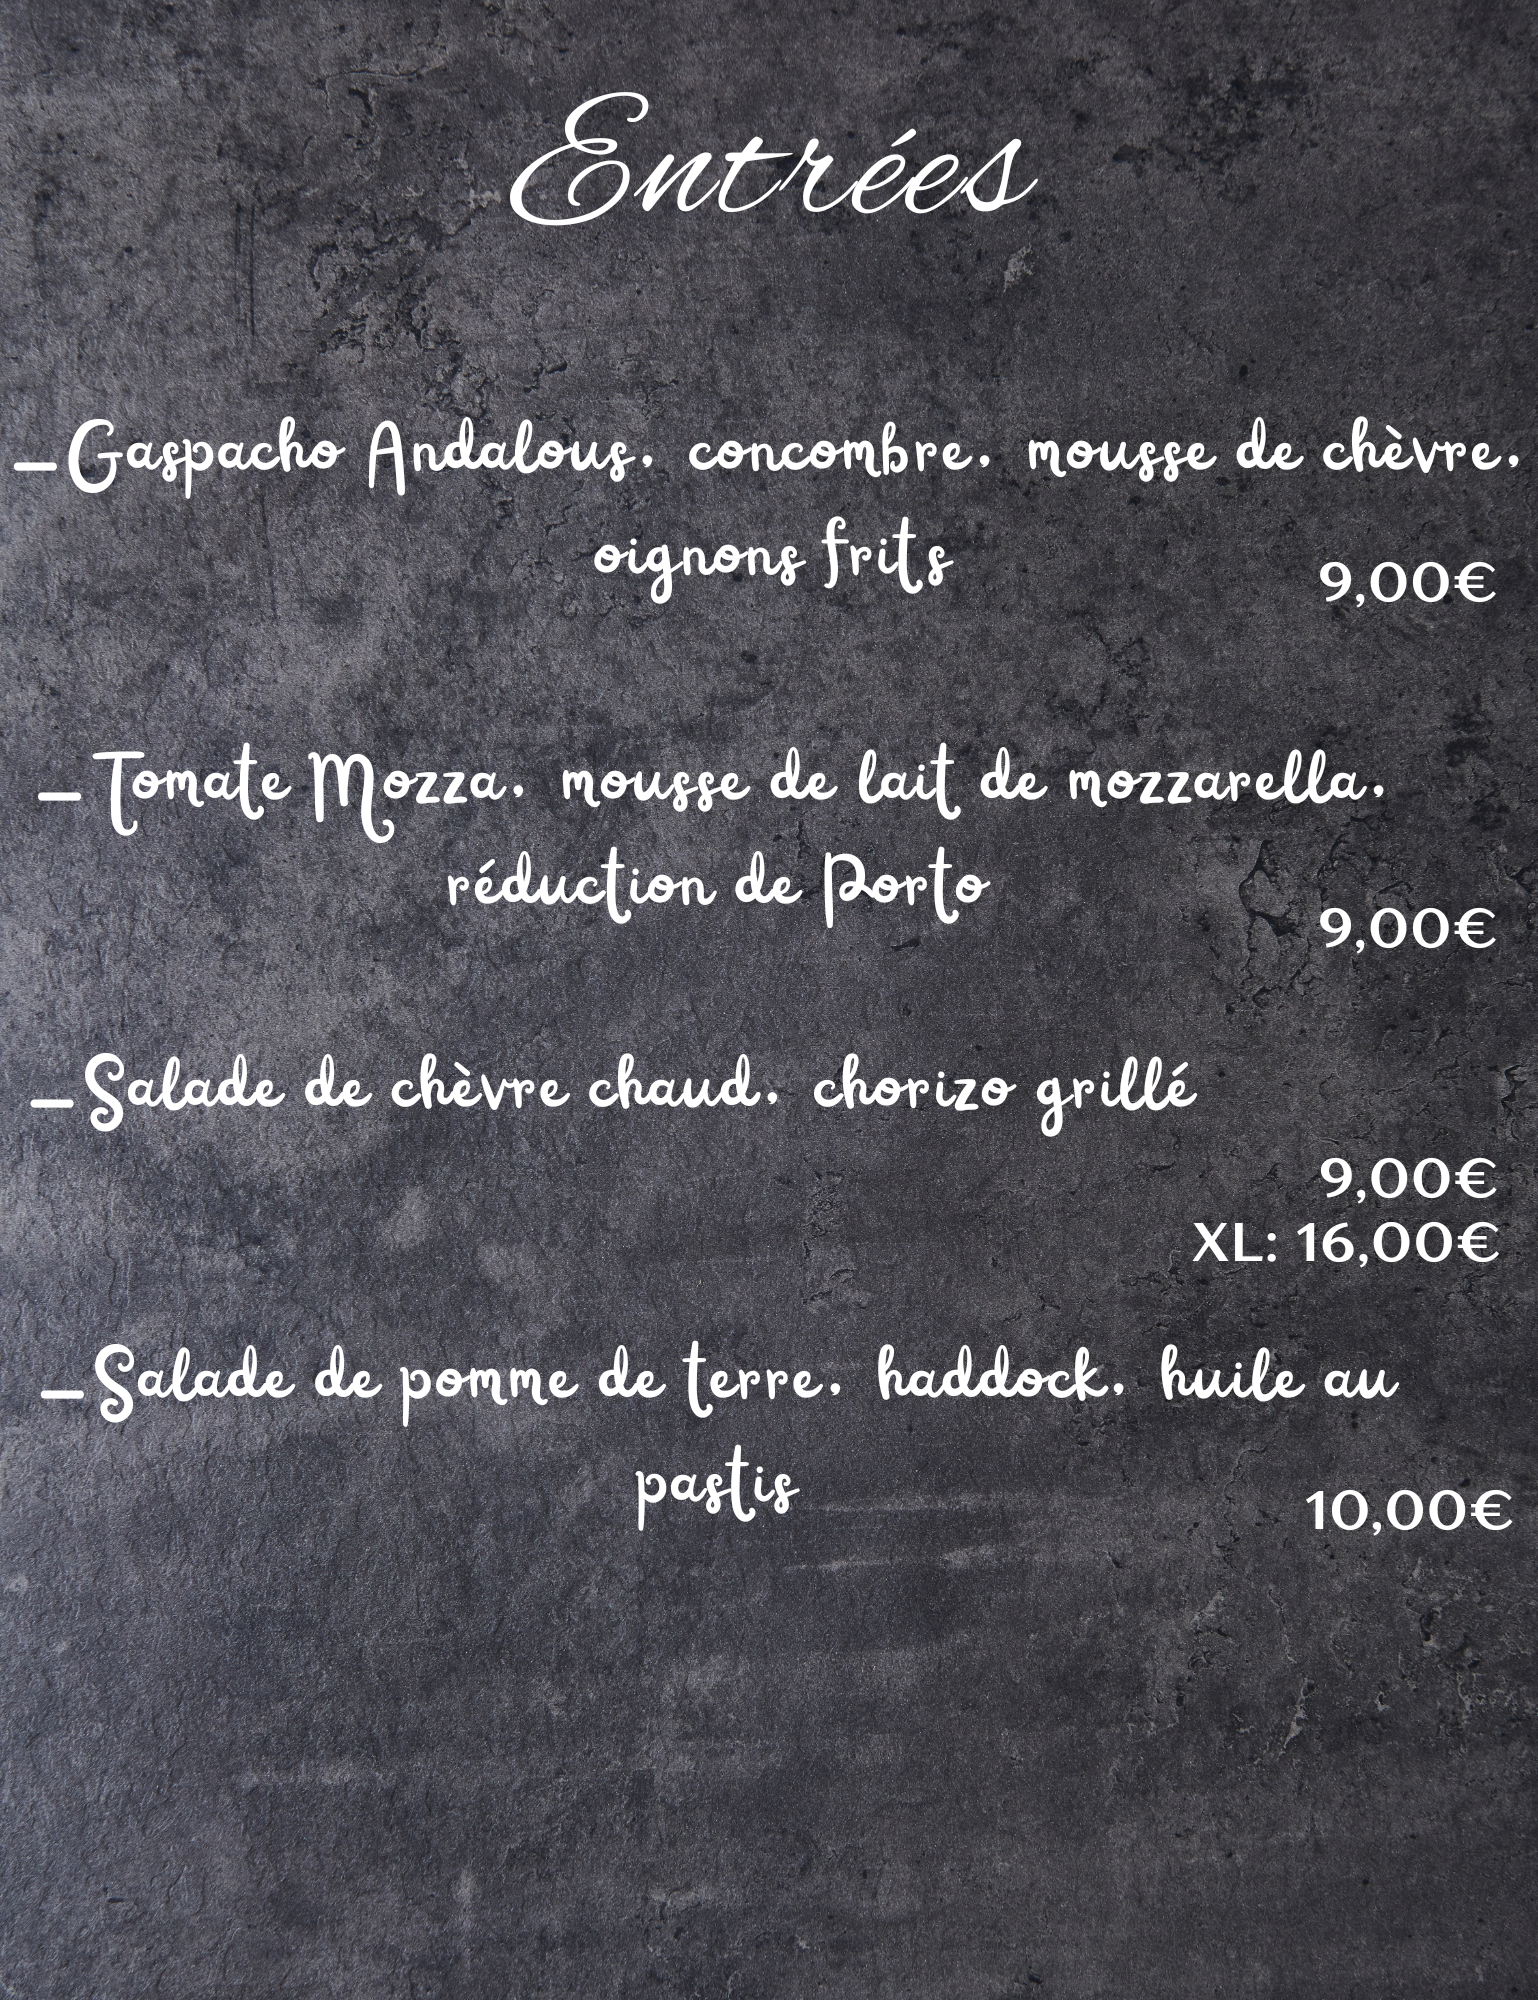 Entrées
-Gaspacho Andalous, concombre, mousse de chèvre,
oignons frits
9,00€
-Tomate Mozza, mousse de lait de mozzarella,
réduction de Porto
9,00€
-Salade de chèvre chaud, chorizo grillé
9,00€
XL: 16,00€
-Salade de pomme de terre, haddock, huile au
pastis
10,00€